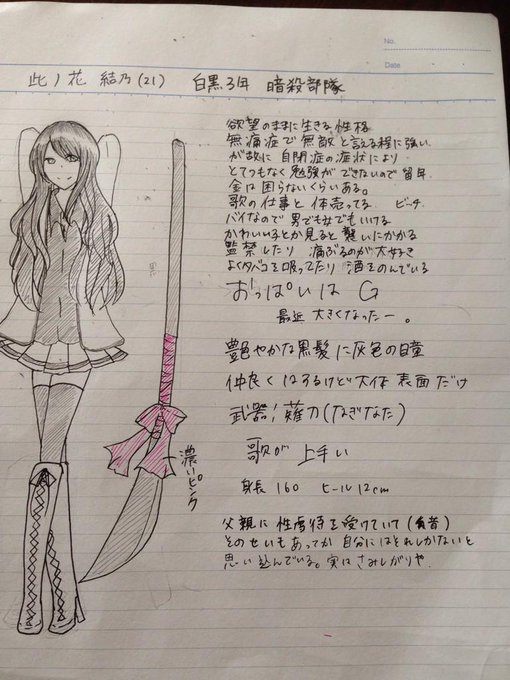 No.
Date
此ノ花 結乃(21) 白黒3年 暗殺部隊
欲望のままに生きる性格
無痛症で無敵と言える程に強い
が故に自閉症の症状により
とてつもなく勉強ができないので留年
金は困らないくらいある。
歌の仕事と体売ってる。 ビッチ
バイなので男でも女でもいける
かわいい子とか見ると襲いにかかる
監禁したり 痛ぶるのが大好き
よくタバコを吸ってたり酒をのんでいる
おっぱいは G
最近 大きくなったー。
艶やかな黒髪に灰色の瞳
仲良くはするけど大体表面だけ
武器:薙刀(なぎなた)
濃いピンク
歌が上手い
身長 160 ヒール12cm
父親に性虐待を受けていて(昔)
そのせいもあってか自分にはそれしかないと
思い込んでいる。実はさみしがりや.